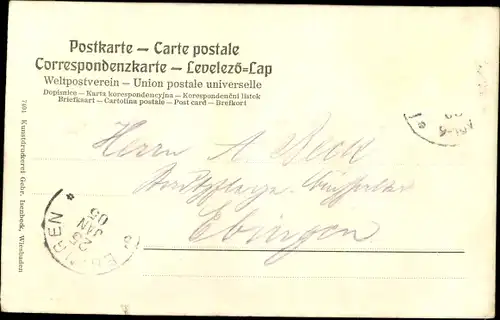 Postkarte – Carte postale
Correspondenzkarte – Levelező=Lap
Weltpostverein – Union postale universelle
Dopisnice – Karta korespondencyjna – Korespondenční lístek
Briefkaart – Cartolina postale – Post card – Brefkort
Herrn A. Beck
Ebingen
25
JAN
05
7491 Kunstdruckerei Gebr. Isenbeck, Wiesbaden